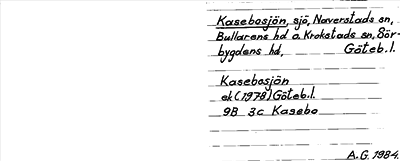 Kasebosjön, sjö, Naverstads sn,
Bullarens hd o. Krokstads sn, Sör-
bygdens hd, Göteb.l.
Kasebosjön
ek (1978) Göteb.l.
9B 3c Kasebo
A.G. 1984.